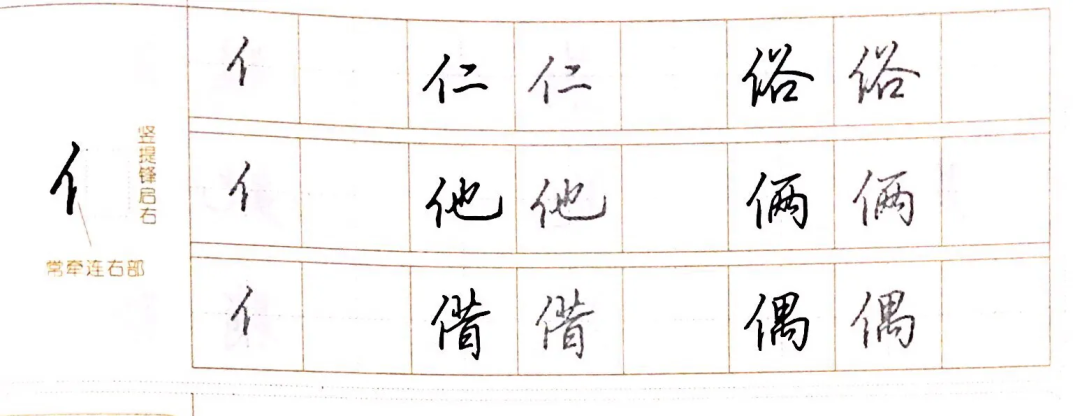 亻 仁 仁 俗 俗
亻
竖提锋启右
亻 他 他 俩 俩
常牵连右部
亻 借 借 偶 偶